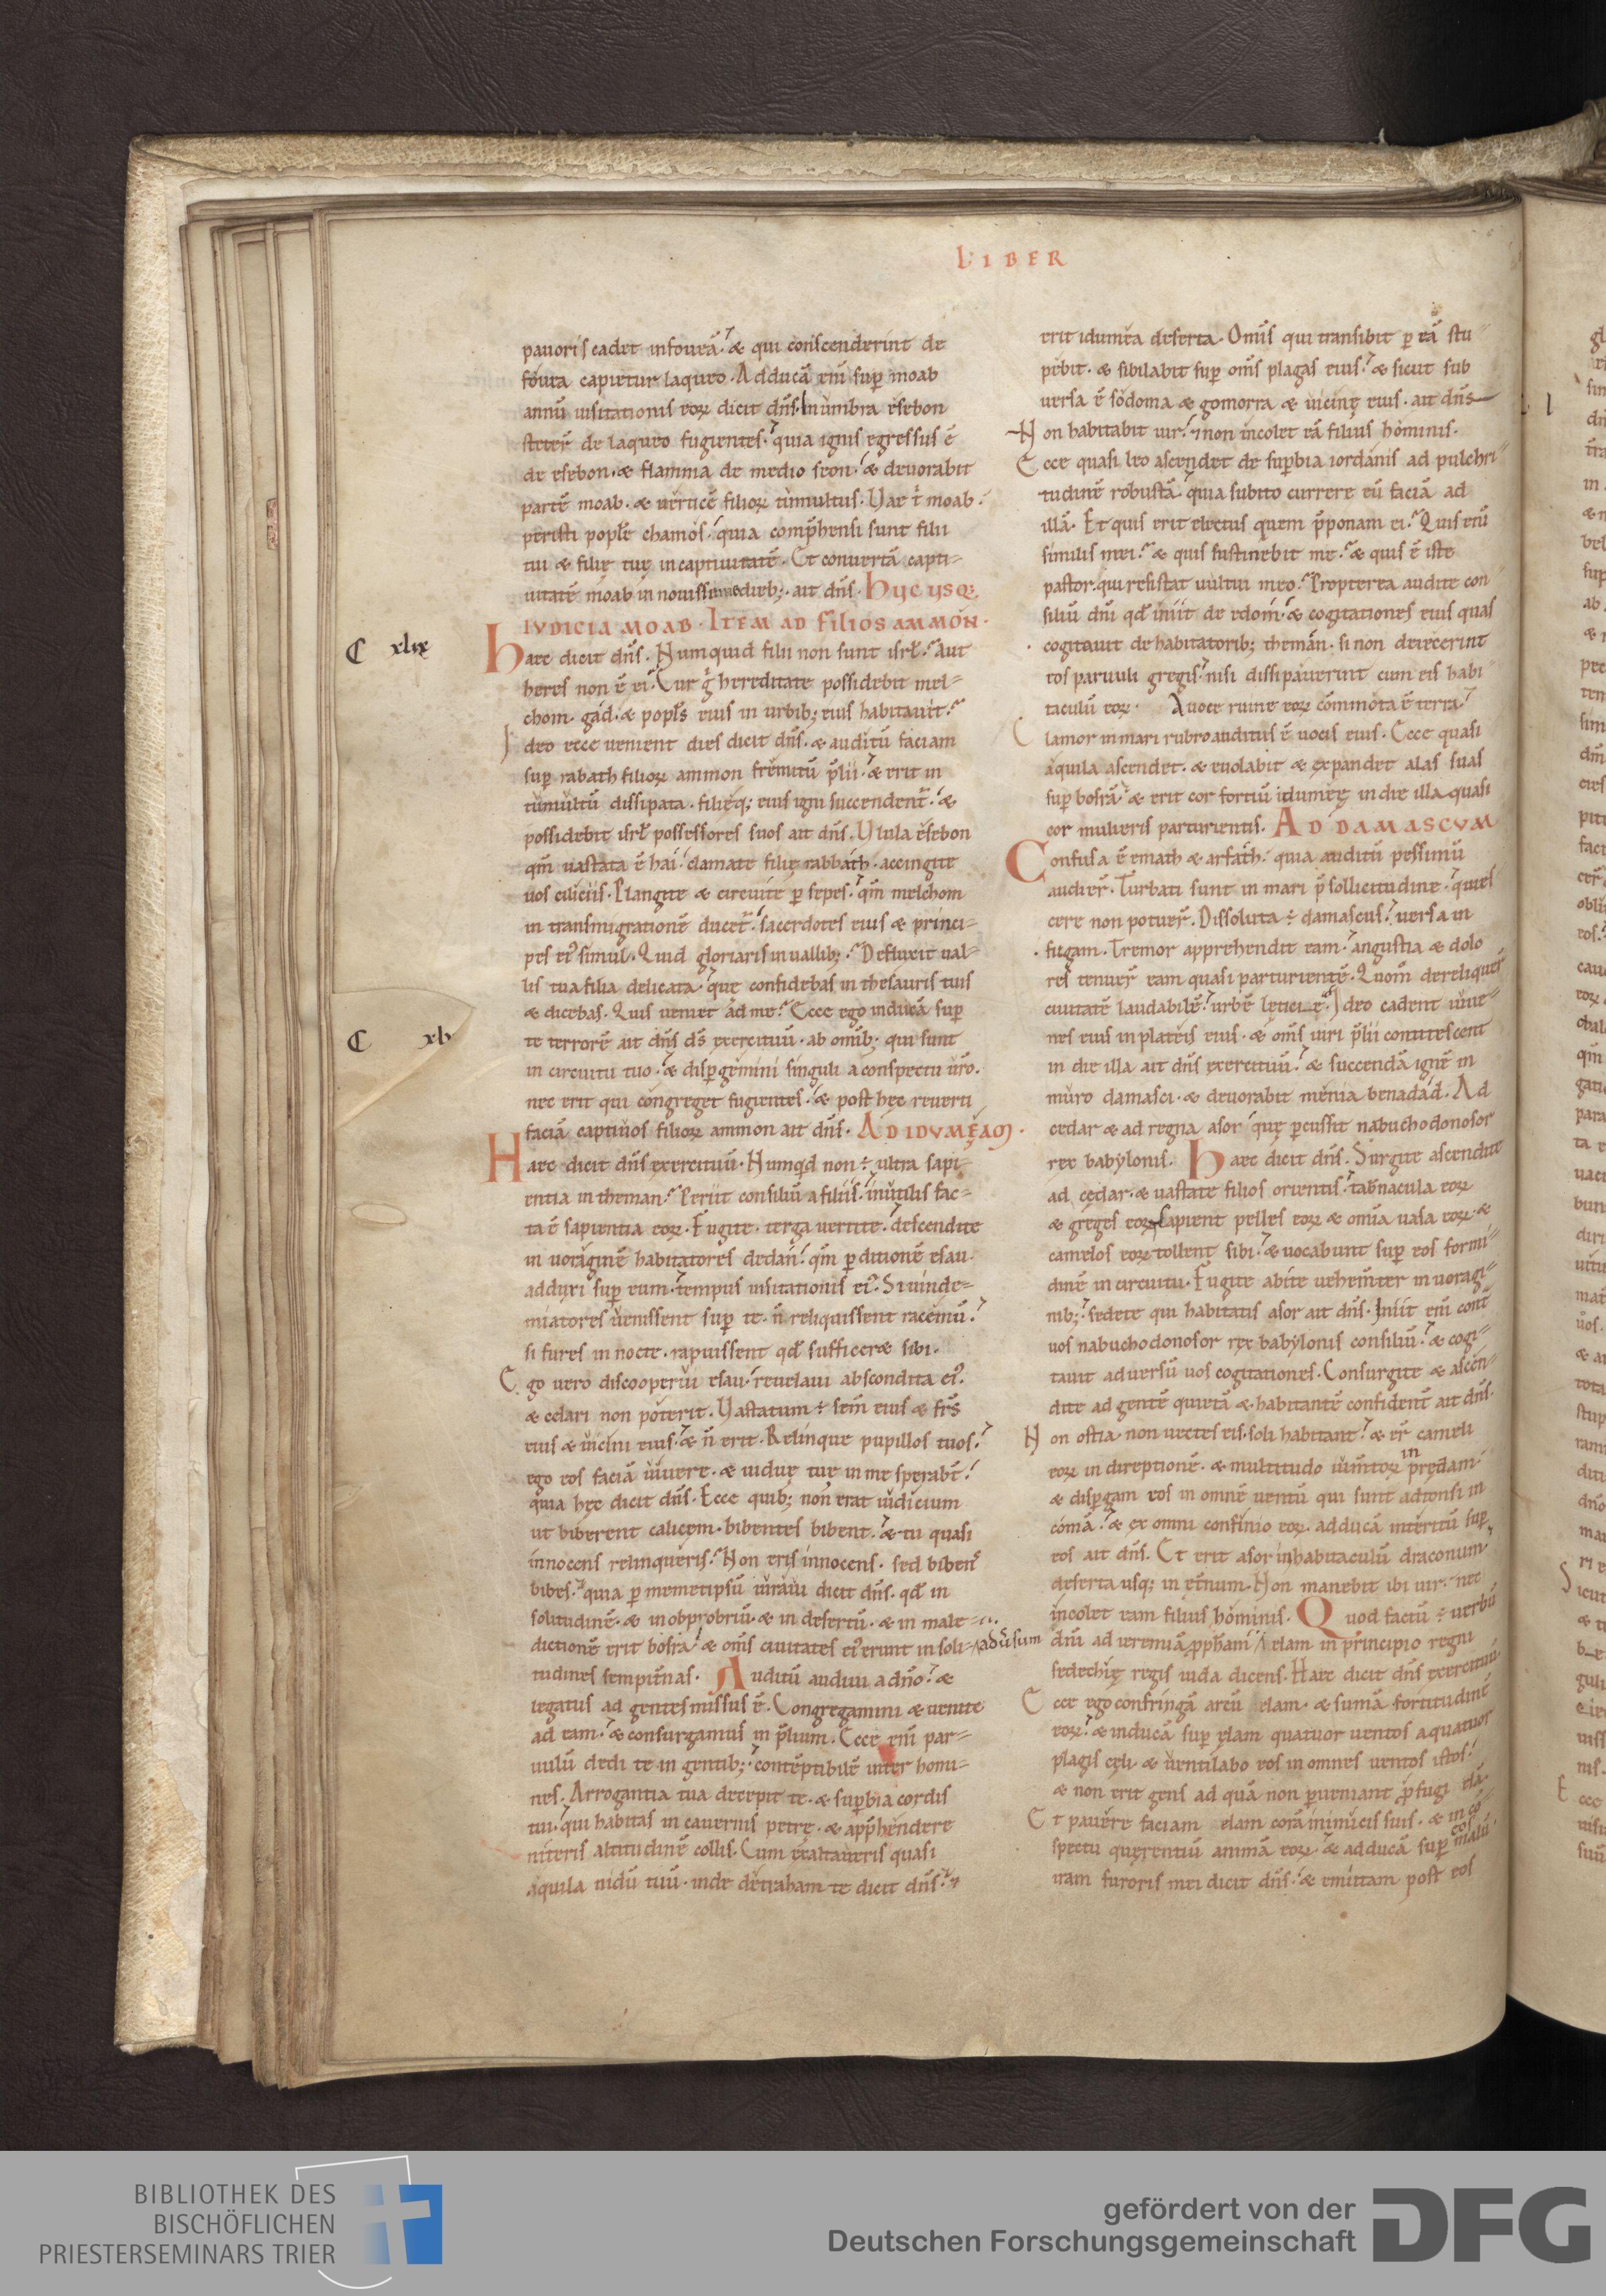 LIBER
pauoris cadet infoueā. & qui conscenderint de
fouea capietur laqueo. Adducā eni̅ sup̲ moab
annū uisitationis eoꝝ dicit dn̅s. In umbra esebon
steter̅ de laqueo fugientes. quia ignis egressus ē
de esebon. & flamma de medio seon. & deuorabit
partē moab. & uerticē filioꝝ tumultus. Vae t̅ moab.
peristi popl̅e chamos. quia comp̅hensi sunt filii
tui & filię tuę in captiuitatē. Et conuertā capti-
uitatē moab in nouissimis dieb;. ait dn̅s. Hyc ysq;
IVDICIA MOAB. ITEM AD FILIOS AMMON.
C xlix
Haec dicit dn̅s. Numquid filii non sunt isrł. Aut
heres non ē ei. Cur g̊ hereditate possidebit mel-
chom. gad. & popl̅s eius in urbib; eius habitauit.
Ideo ecce uenient dies dicit dn̅s. & auditū faciam
sup̲ rabath filioꝝ ammon fremitū p̅lii. & erit in
tumultū dissipata. filięq; eius igni succendent̅. &
possidebit isrł possessores suos ait dn̅s. Vlula esebon
qm̅ uastata ē hai. clamate filię rabbath. accingite
uos ciliciis. Plangite & circuite p̲ sepes. qm̅ melchom
in transmigrationē ducet̅. sacerdotes eius & princi-
pes ei' simul. Quid gloriaris in uallib;. Defluxit ual-
lis tua filia delicata. quę confidebas in thesauris tuis
& dicebas. Quis ueniet ad me. Ecce ego inducā sup̲
C xlv
te terrorē ait dn̅s ds̅ exercituū. ab omīb; qui sunt
in circuitu tuo. & disp̲gemini singuli a conspectu ur̅o.
nec erit qui congreget fugientes. & post hęc reuerti
faciā captiuos filioꝝ ammon ait dn̅s. AD IDVMĘAM.
Haec dicit dn̅s exercituū. Numqd non ÷ ultra sapi-
entia in theman. Periit consiliū a filiis. inutilis fac-
ta ē sapientia eoꝝ. Fugite. terga uertite. descendite
in uoraginē habitatores dedan. qm̅ p̲ditionē esau.
adduxi sup̲ eum. tempus uisitationis ei'. Si uinde-
miatores uenissent sup̲ te. n̅ reliquissent racemū.
si fures in nocte. rapuissent qd̅ sufficer& sibi.
Ego uero discooperui esau. reuelaui abscondita ei'.
& celari non poterit. Vastatum ÷ sem̅ eius & frs̅
eius & uicini eius. & n̅ erit. Relinque pupillos tuos.
ego eos faciā uiuere. & uiduę tuę in me sperabt̅.
quia hęc dicit dn̅s. Ecce quib; non erat iudicium
ut biberent calicem. bibentes bibent. & tu quasi
innocens relinqueris. Non eris innocens. sed bibens
bibes. quia p̲ memetipsū iuraui dicit dn̅s. qd̅ in
solitudinē. & in obprobriū. & in desertū. & in male-
dictionē erit bosra. & oms̅ ciuitates ei' erunt in soli-
tudines sempit̅nas. Auditū audiui a dn̅o. &
legatus ad gentes missus ē. Congregamini & uenite
ad eam. & consurgamus in p̅lium. Ecce eni̅ par-
uulū dedi te in gentib;. contēptibilē inter homi-
nes. Arrogantia tua decepit te. & sup̲bia cordis
tui. qui habitas in cauernis petrę. & app̅hendere
niteris altitudinē collis. Cum exaltaueris quasi
aquila nidū tuū. inde detraham te dicit dn̅s. &
erit idumea deserta. Omīs qui transibit p̲ eā stu-
pebit. & sibilabit sup̲ oms̅ plagas eius. & sicut sub
uersa ē sodoma & gomorra & uicinę eius. ait dn̅s
Non habitabit uir. & non incolet eā filius hominis.
Ecce quasi leo ascendet de sup̲bia iordanis ad pulchri-
tudinē robustā. quia subito currere eū faciā ad
illā. Et quis erit electus quem p̅ponam ei. Quis eni̅
similis mei. & quis sustinebit me. & quis ē iste
pastor. qui resistat uultui meo. Propterea audite con-
siliū dn̅i qd̅ iniit de edom. & cogitationes eius quas
cogitauit de habitatorib; theman. si non deiecerint
eos paruuli gregis. nisi dissipauerint cum eis habi-
taculū eoꝝ. A uoce ruine eoꝝ cōmota ē terra.
Clamor in mari rubro auditus ē uocis eius. Ecce quasi
aquila ascendet. & euolabit & expandet alas suas
sup̲ bosrā. & erit cor fortiū idumeę in die illa quasi
cor mulieris parturientis. AD DAMASCVM
Confusa ē emath & arfath. quia auditū pessimū
audier̅. Turbati sunt in mari p̅ sollicitudine. quies
cere non potuer̅. Dissoluta ÷ damascus. uersa in
fugam. Tremor apprehendit eam. angustia & dolo
res tenuer̅ eam quasi parturientē. Quom̅ dereliquer̅
ciuitatē laudabilē. urbē lęticię. Ideo cadent iuue-
nes eius in plateis eius. & oms̅ uiri p̅lii conticescent
in die illa ait dn̅s exercituū. & succendā ignē in
muro damasci. & deuorabit menia benadad. Ad
cedar & ad regna asor quę p̲cussit nabuchodonosor
rex babylonis. Haec dicit dn̅s. Surgite ascendite
ad cędar. & uastate filios orientis. tab̅nacula eoꝝ
& greges eoꝝ capient pelles eoꝝ & omīa uasa eoꝝ. &
camelos eoꝝ tollent sibi. & uocabunt sup̲ eos formi-
dinē in circuitu. Fugite abite uehemt̅er in uoragi-
nib;. sedete qui habitatis asor ait dn̅s. Iniit eni̅ cont̅
uos nabuchodonosor rex babylonis consiliū. & cogi-
tauit aduersū uos cogitationes. Consurgite & ascen-
dite ad gentē quietā & habitantē confident̅ ait dn̅s.
Non ostia non uectes eis. soli habitant. & er̅ cameli
eoꝝ in direptionē. & multitudo iumt̅oꝝ in prędam
& disp̲gam eos in omnē uentū qui sunt adtonsi in
comā. & ex omni confinio eoꝝ. adducā interitū sup̲
eos ait dn̅s. Et erit asor in habitaculū draconum
deserta usq; in et̅num. Non manebit ibi uir. nec
incolet eam filius hominis. Quod factū ÷ uerbū
dn̅i ad ieremiā p̲ph̅am aduersum elam in principio regni
sedechię regis iuda dicens. Haec dicit dn̅s exercituū
Ecce ego confringā arcū elam. & sumā fortitudinē
eoꝝ. & inducā sup̲ elam quatuor uentos a quatuor
plagis cęli. & uentilabo eos in omnes uentos istos.
& non erit gens ad quā non p̲ueniant p̲fugi elā.
Et pauere faciam elam corā inimicis suis. & in cō-
spectu quęrentiū animā eoꝝ. & adducā sup̲ eos malū
iram furoris mei dicit dn̅s. & emittam post eos
BIBLIOTHEK DES
BISCHÖFLICHEN
PRIESTERSEMINARS TRIER
gefördert von der
Deutschen Forschungsgemeinschaft
DFG